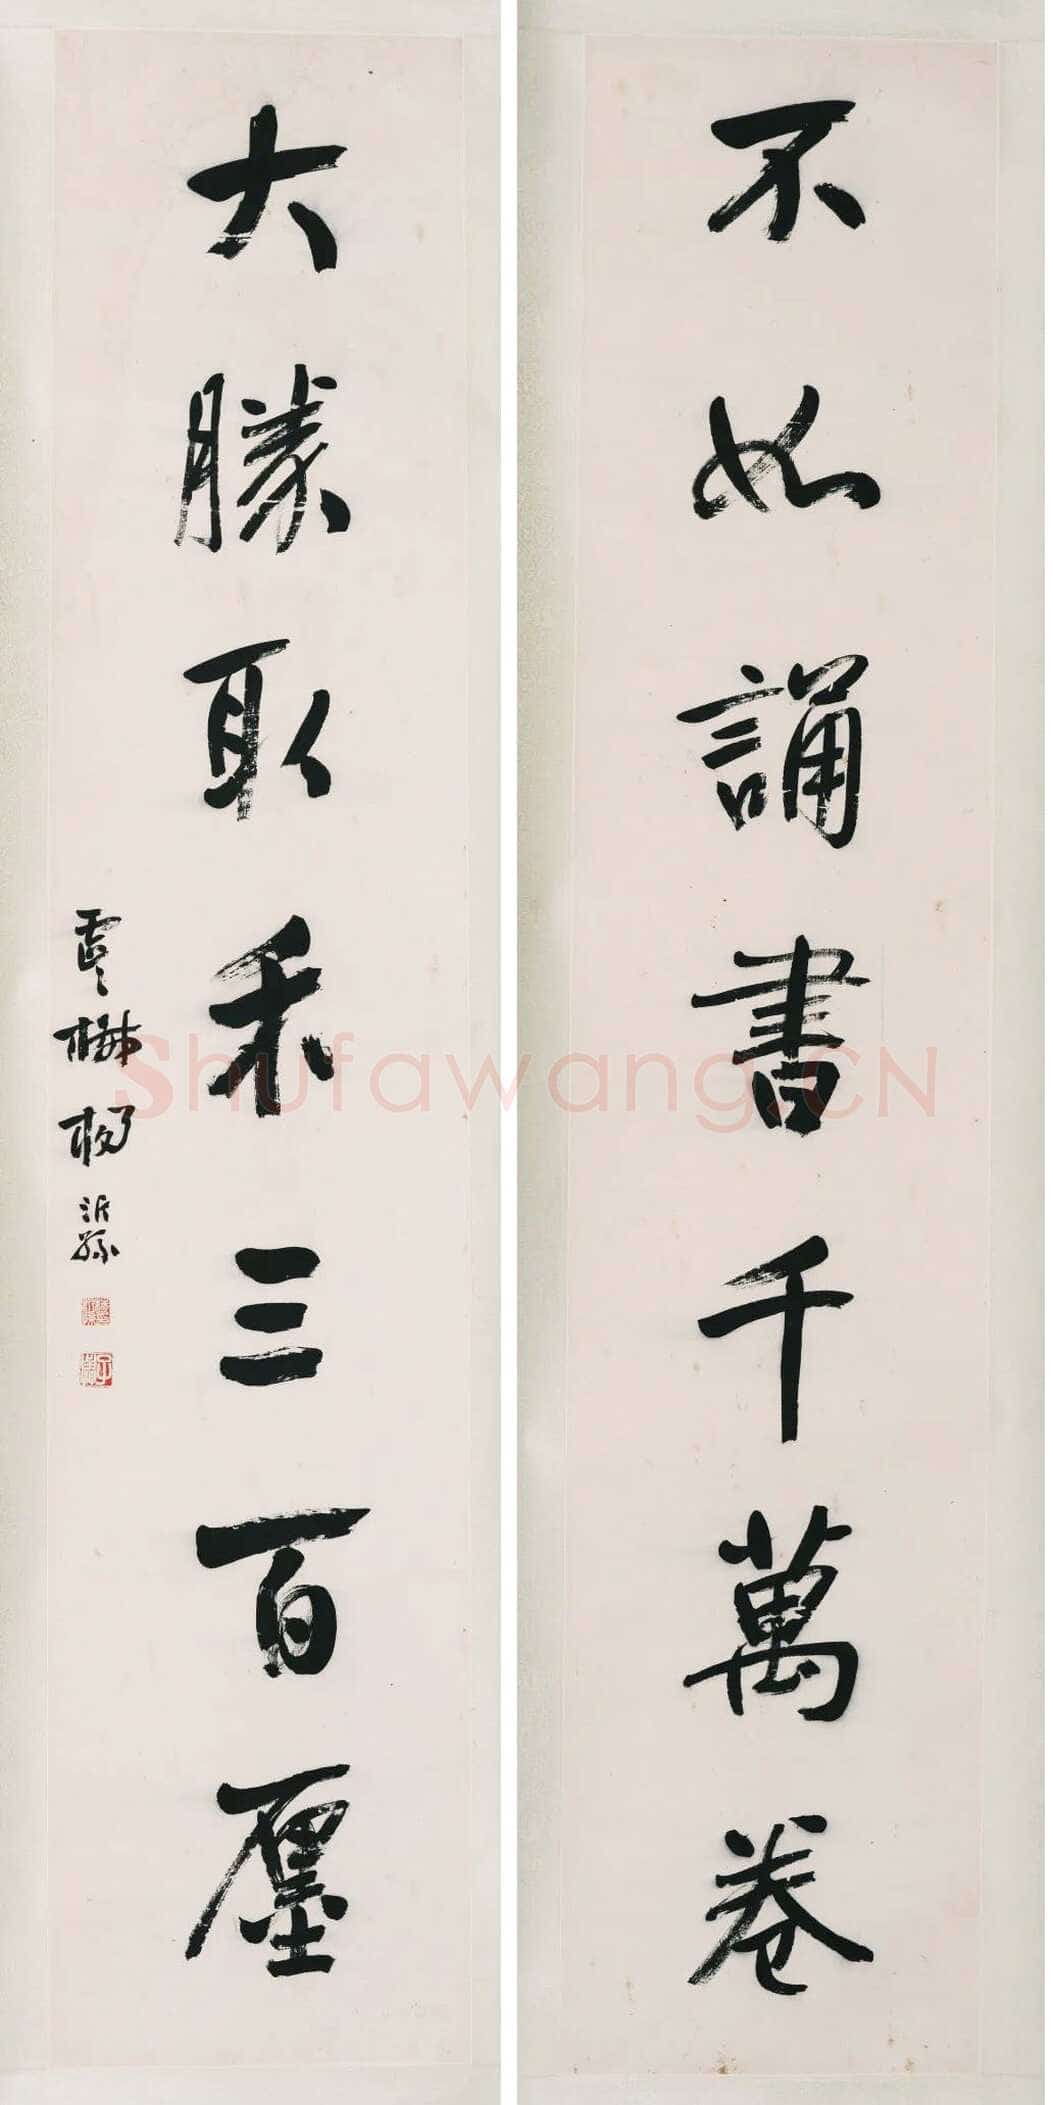 不如誦書千萬卷
大勝取禾三百廛
虞楙楊沂孫
Shufawang.CN